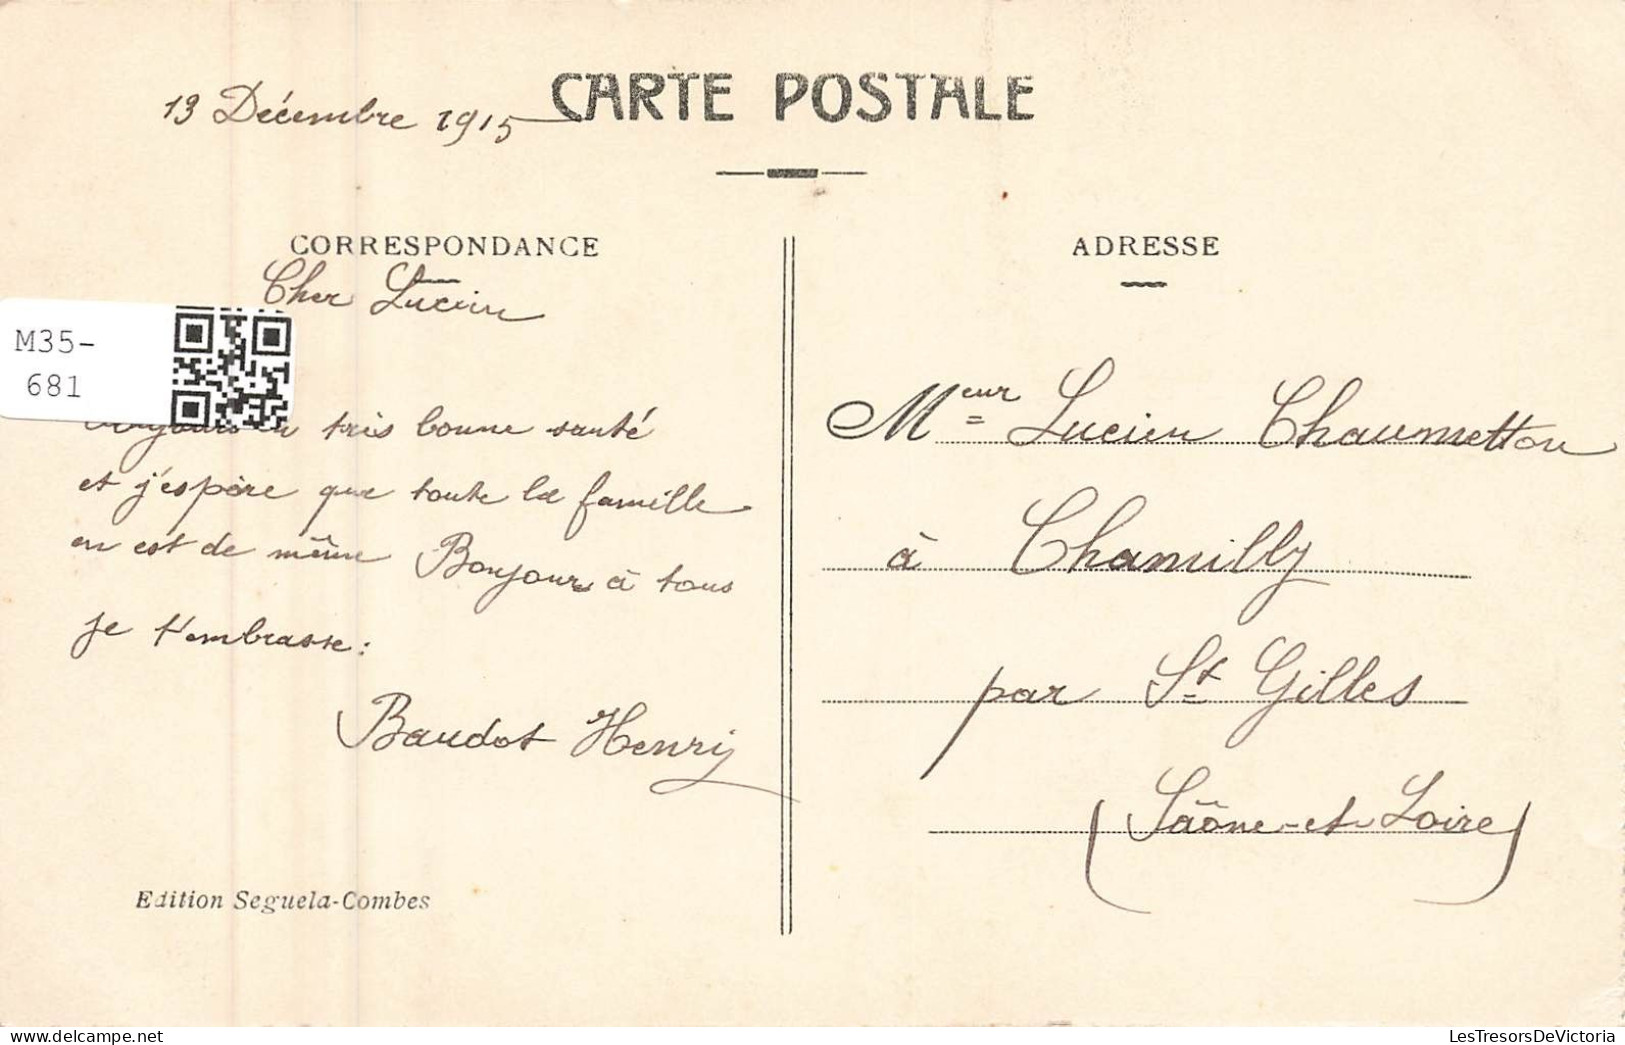 CARTE POSTALE
13 Décembre 1915
CORRESPONDANCE
Cher Lucien
M35-
681
Toujours en très bonne santé
et j'espère que toute la famille
en est de même Bonjour à tous
je t'embrasse:
Baudot Henry
Edition Seguela-Combes
ADRESSE
Meur Lucien Chaumetton
à Chamilly
par St Gilles
(Sâône-et-Loire)
LesTresorsDeVictoria